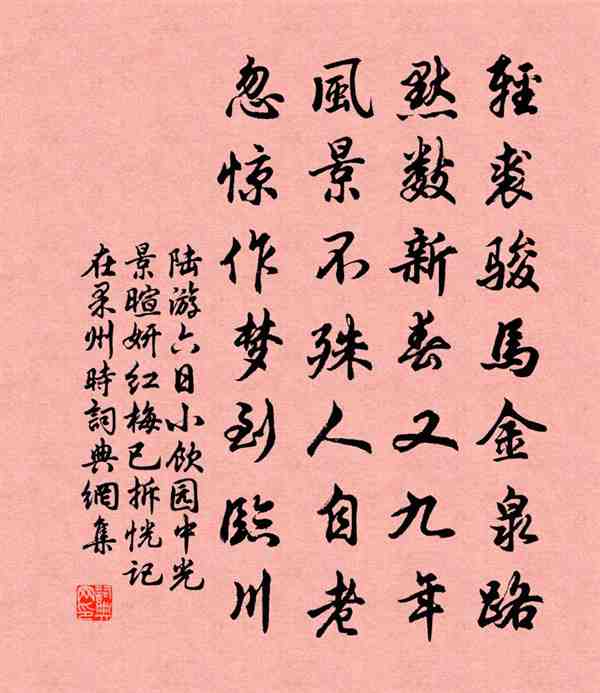 輕裘骏馬金泉路
默數新春又九年
風景不殊人自老
忽惊作梦到臨川
陆游六日小飲园中光
景暄妍红梅已拆恍记
在果州時詞典網集